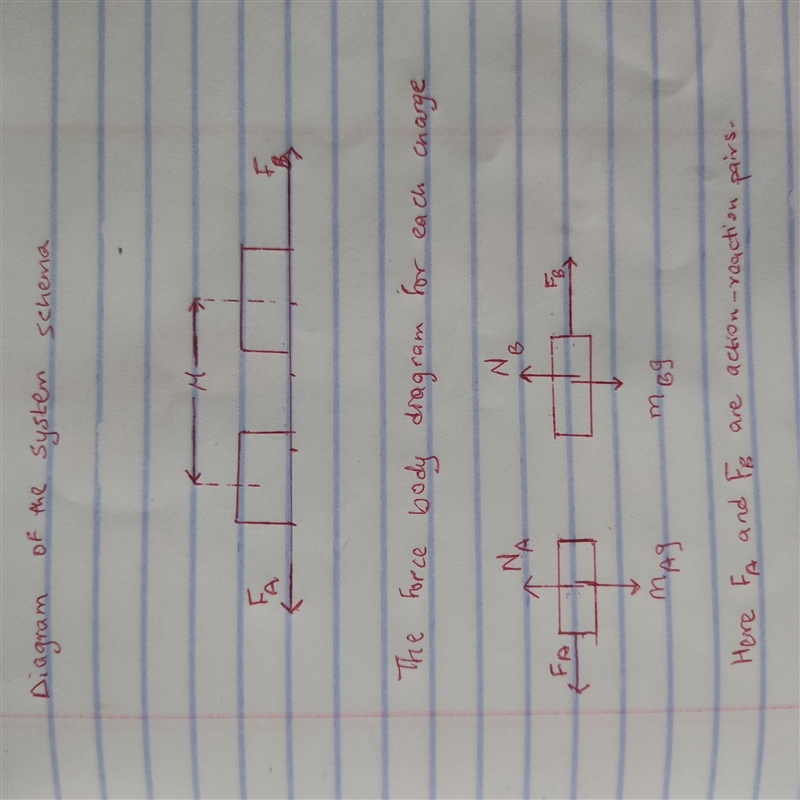 Diagram of the system schema
M
F_A F_B
The Force body diagram for each charge
N_A N_B
F_A F_B
m_Ag m_Bg
Here F_A and F_B are action-reaction pairs.